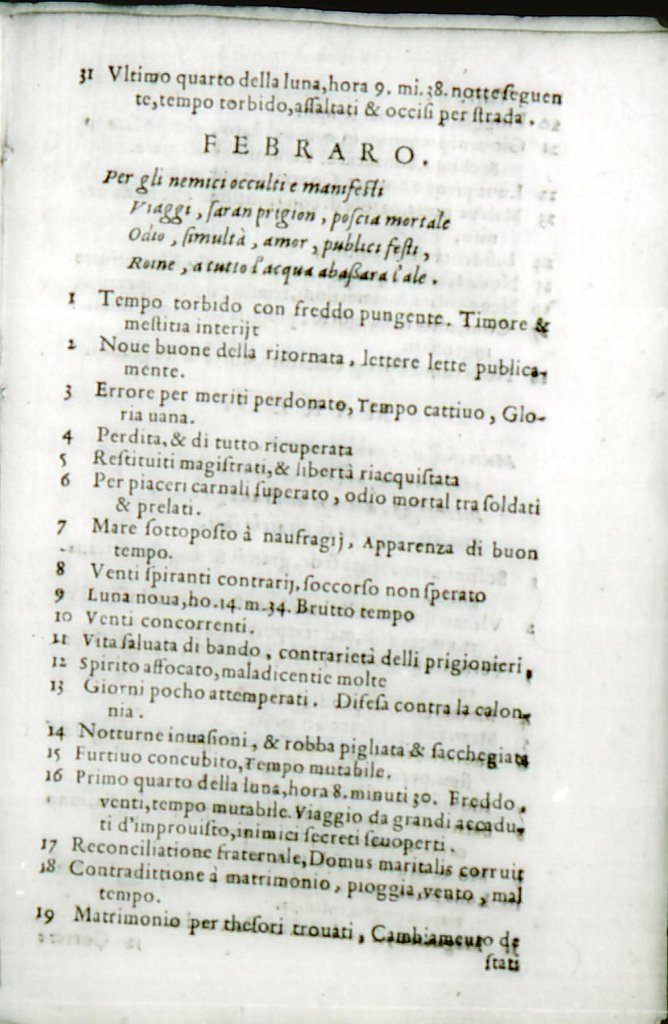 31 Vltimo quarto della luna, hora 9. mi. 38. notte seguen
te, tempo torbido, assaltati & occisi per strada.
FEBRARO.
Per gli nemici occulti e manifesti
Viaggi, saran prigion, poscia mortale
Odio, simultà, amor, publici festi,
Roine, a tutto l'acqua abaßara l'ale.
1 Tempo torbido con freddo pungente. Timore &
mestitia interijt
2 Noue buone della ritornata, lettere lette publica-
mente.
3 Errore per meriti perdonato, Tempo cattiuo, Glo-
ria uana.
4 Perdita, & di tutto ricuperata
5 Restituiti magistrati, & libertà riacquistata
6 Per piaceri carnali superato, odio mortal tra soldati
& prelati.
7 Mare sottoposto à naufragij, Apparenza di buon
tempo.
8 Venti spiranti contrarij, soccorso non sperato
9 Luna noua, ho. 14. m. 34. Brutto tempo
10 Venti concorrenti.
11 Vita saluata di bando, contrarietà delli prigionieri,
12 Spirito affocato, maladicentie molte
13 Giorni pocho attemperati. Difesa contra la calon-
nia.
14 Notturne inuasioni, & robba pigliata & sacchegiata
15 Furtiuo concubito, Tempo mutabile.
16 Primo quarto della luna, hora 8. minuti 30. Freddo,
venti, tempo mutabile. Viaggio da grandi accadu-
ti d'improuisto, inimici secreti scuoperti.
17 Reconciliatione fraternale, Domus maritalis corruit
18 Contradittione à matrimonio, pioggia, vento, mal
tempo.
19 Matrimonio per thesori trouati, Cambiamento de
stati